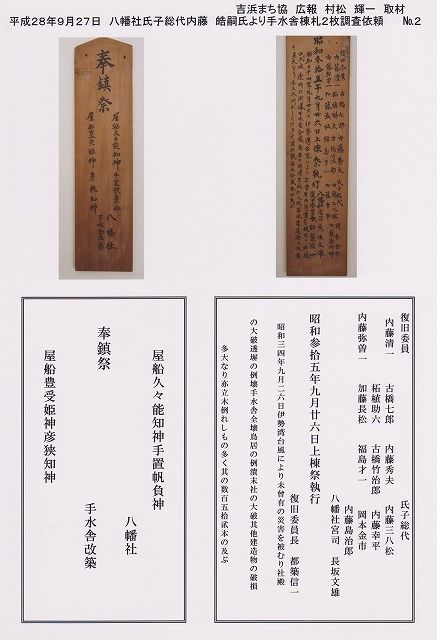 吉浜まち協 広報 村松 輝一 取材
平成28年9月27日 八幡社氏子総代内藤 皓嗣氏より手水舎棟札2枚調査依頼 No.2
奉鎮祭
屋船久々能知神手置帆負神
屋船豊受姫神彦狭知神
八幡社
手水舎改築
昭和参拾五年九月廿六日上棟祭執行
復旧委員
内藤清一 古橋七郎 内藤秀夫
柘植助六 古橋竹治郎
内藤弥曽一 加藤長松 福島才一
氏子総代
内藤三八松
内藤幸平
岡本金市
内藤島治郎
八幡社宮司 長坂文雄
昭和参拾五年九月廿六日上棟祭執行
復旧委員長 都築信一
昭和三四年九月二六日伊勢湾台風により未曾有の災害を被むり社殿
の大破透塀の倒壊手水舎全壊鳥居の倒潰末社の大破其他建造物の破損
多大なり亦立木倒れしもの多く其の数百五拾貳本の及ぶ
屋船久々能知神手置帆負神
奉鎮祭
屋船豊受姫神彦狭知神
八幡社
手水舎改築